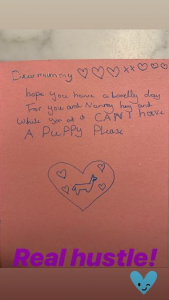 Dear mummy
hope you have a lovelly day
For you and Nanny hug and
While you at it CAN I have
A PUPPY Please
Real hustle!